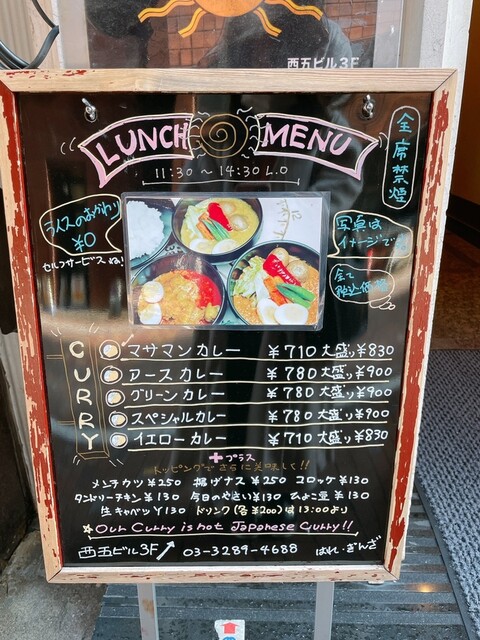 西五ビル3F
LUNCH MENU
11:30 ～ 14:30 L.O
全席禁煙
ライスのおかわり
¥0
セルフサービスね!
写真は
イメージです
全て
税込価格
CURRY
マサマンカレー ¥710 大盛り¥830
アースカレー ¥780 大盛り¥900
グリーンカレー ¥780 大盛り¥900
スペシャルカレー ¥780 大盛り¥900
イエローカレー ¥710 大盛り¥830
+プラス
トッピングでさらに美味しく!!
メンチカツ ¥250 揚げナス ¥250 コロッケ ¥130
タンドリーチキン ¥130 今日のやさい ¥130 ひよこ豆 ¥130
生キャベツ ¥130 ドリンク(各¥200)は13:00より
☆Our Curry is not Japanese Curry!!
西五ビル3F↗ 03-3289-4688 はれ・ぎんざ